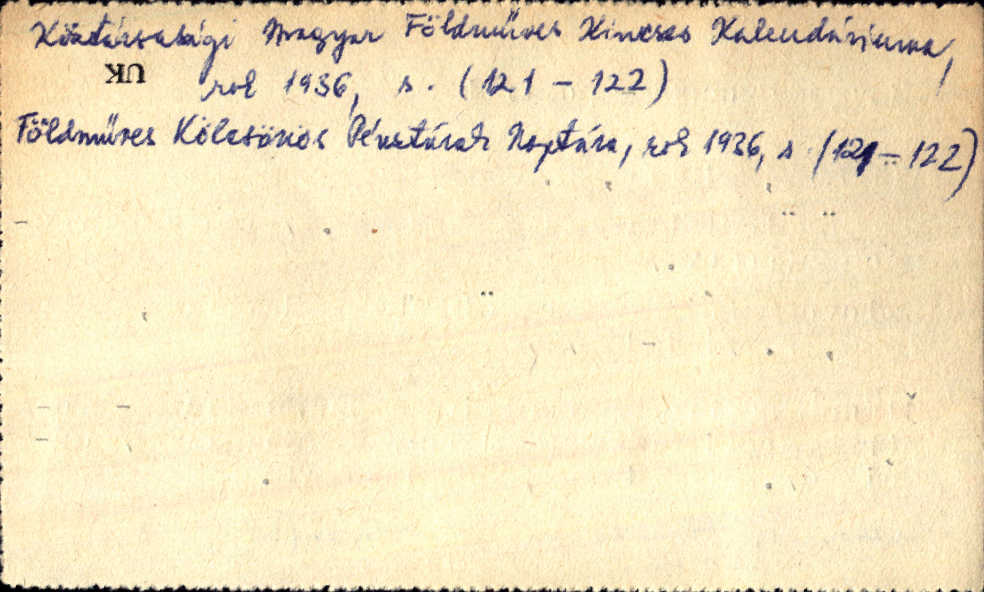 Köztársasági Magyar Földműves Kincses Kalendáriuma,
UK
rok 1936, s. (121 - 122)
Földműves Kölcsönös Pénztárak Naptára, rok 1936, s. (121 - 122)